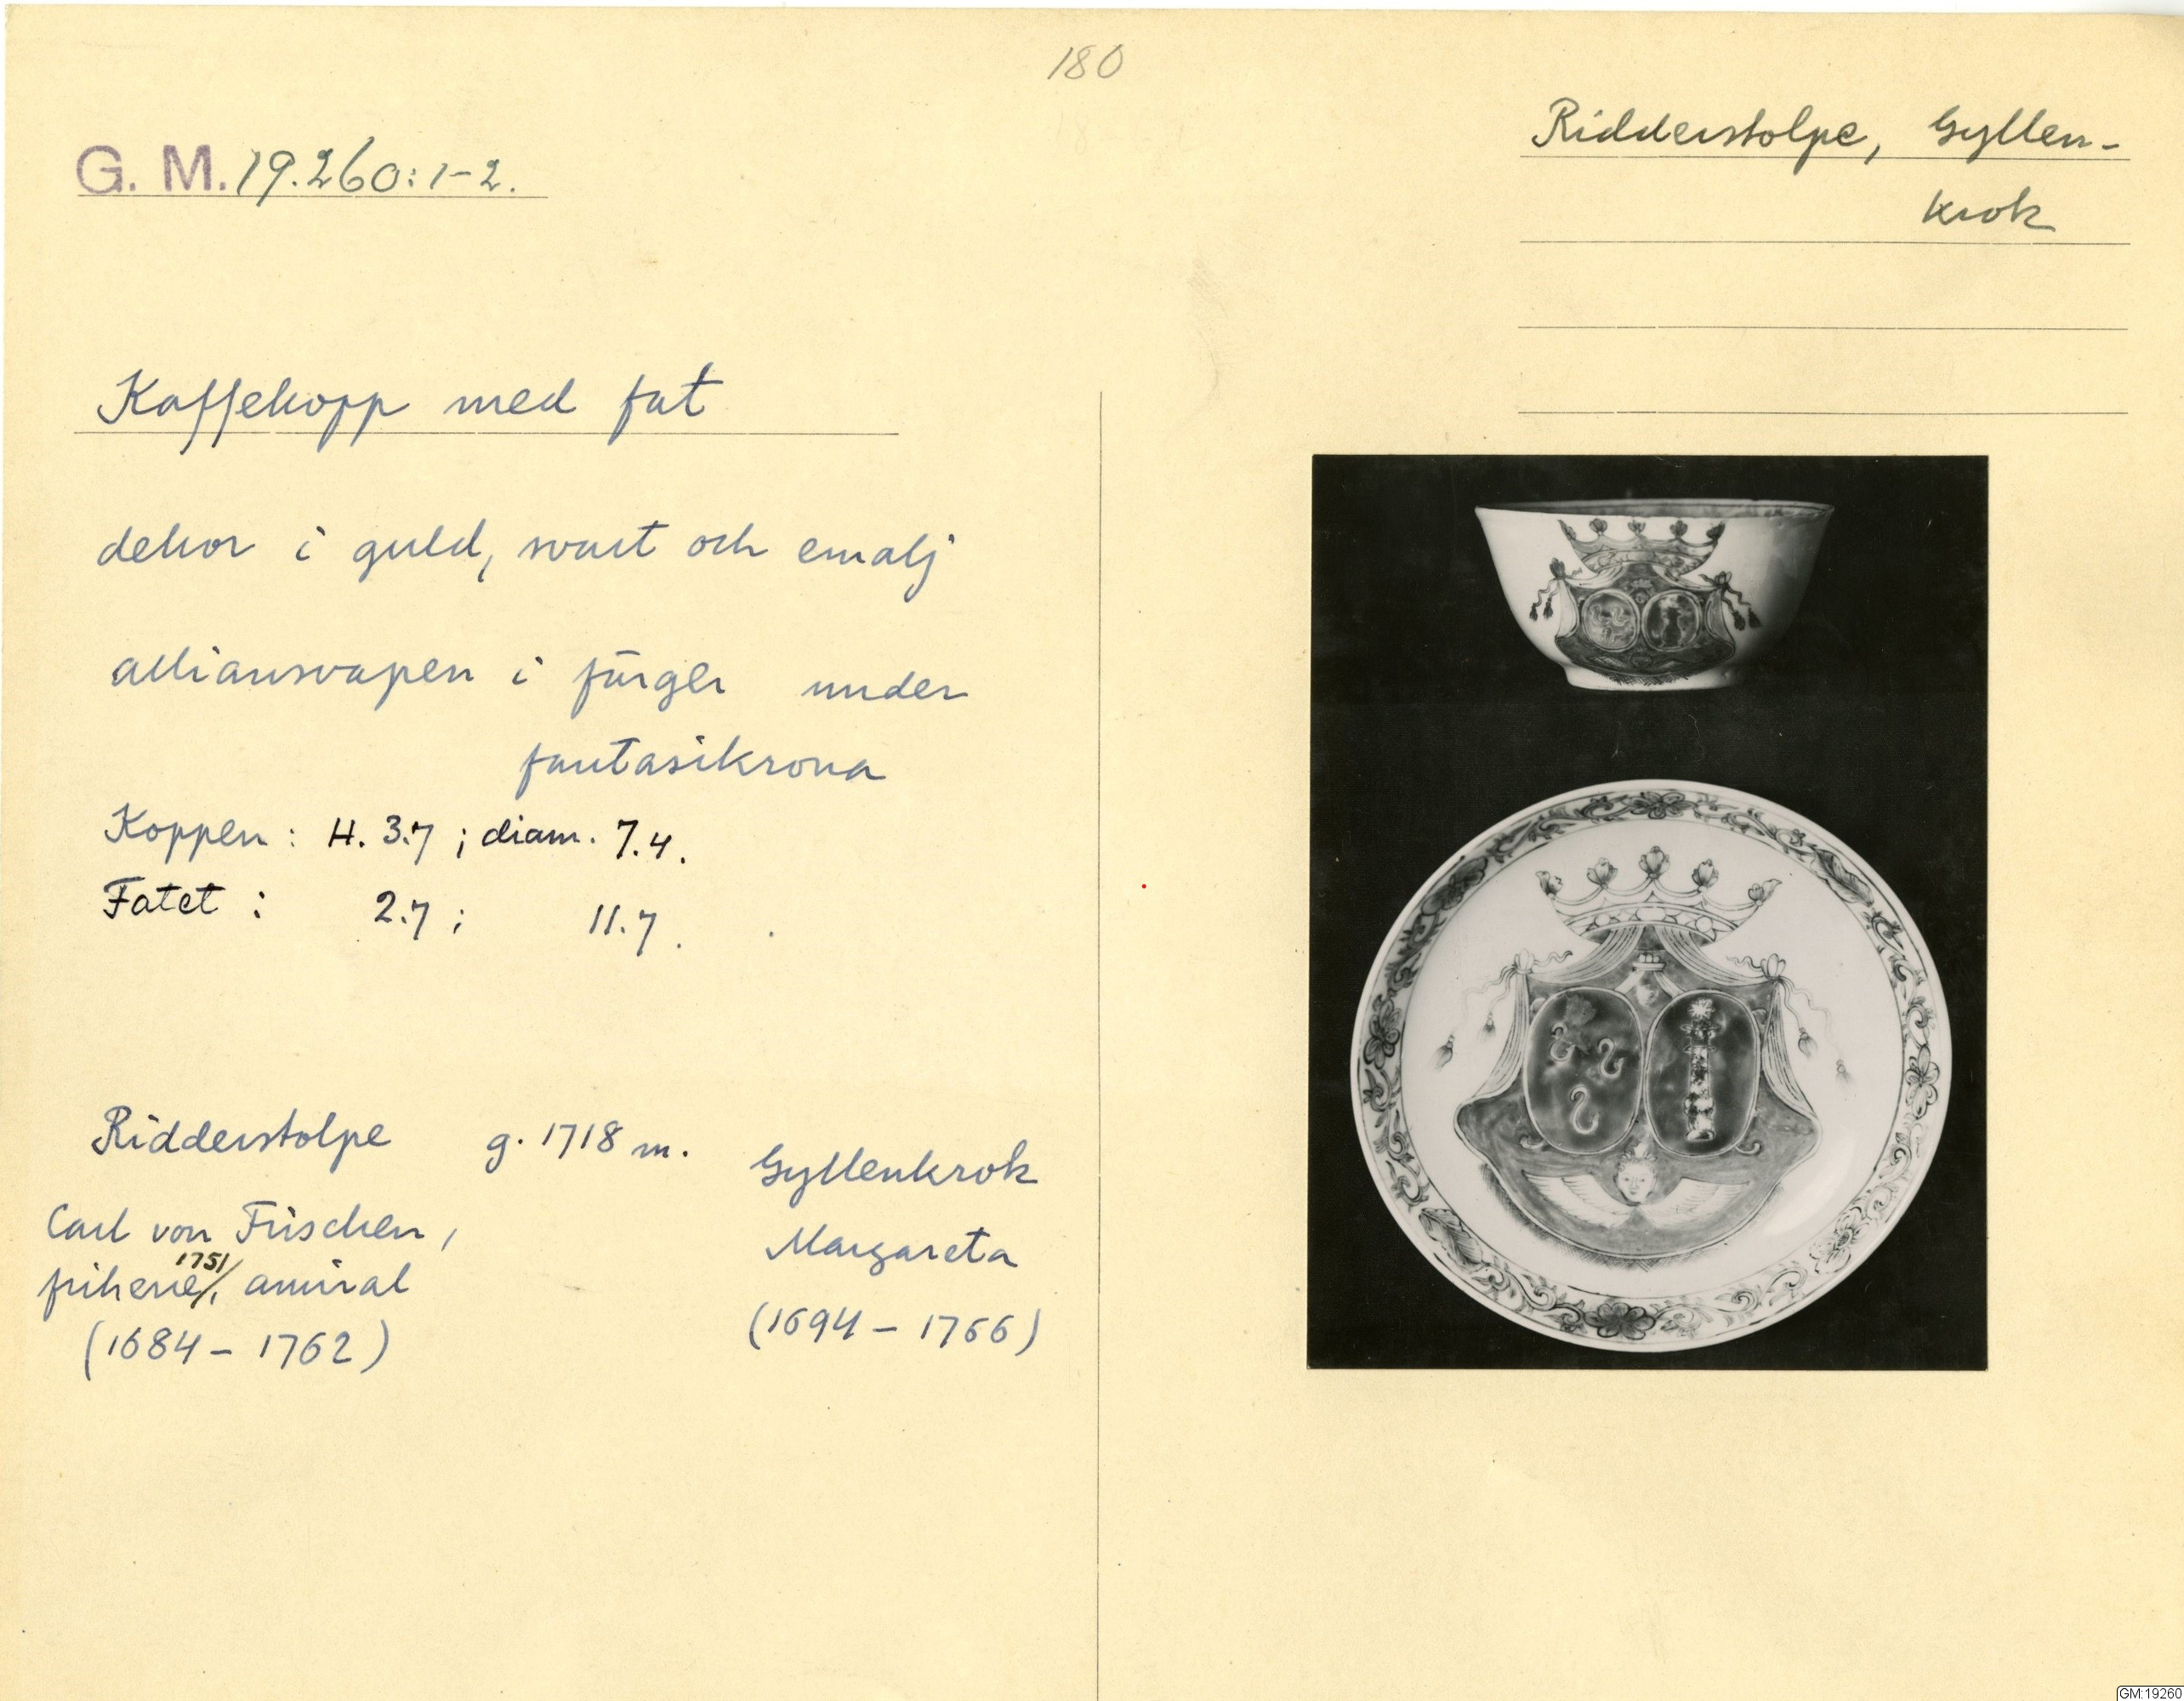 180
G. M. 19.260:1-2.
Ridderstolpe, Gyllen-
krok
Kaffekopp med fat
dekor i guld, svart och emalj
alliansvapen i färger under
fantasikrona
Koppen: H. 3.7; diam. 7.4.
Fatet: 2.7; 11.7.
Ridderstolpe g. 1718 m. Gyllenkrok
Carl von Frischen, Margareta
friherre 1751/, amiral (1694-1766)
(1684-1762)
GM:19260